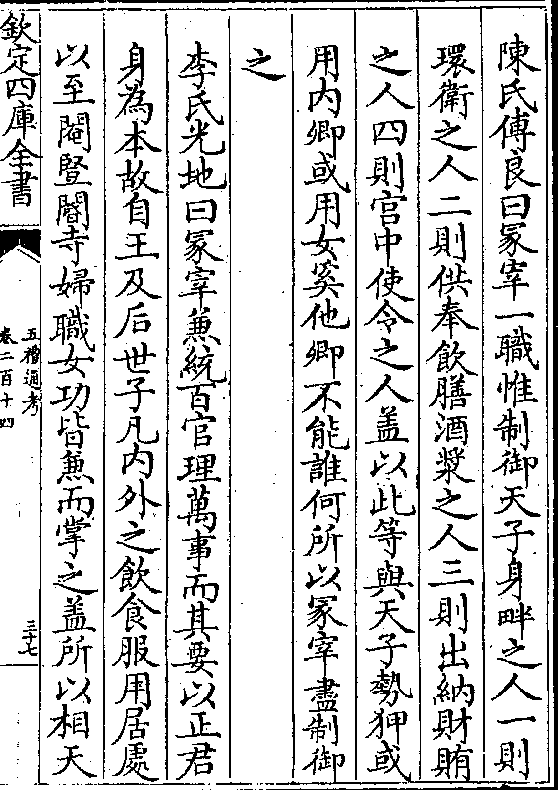 陳氏傅良曰冢宰一職惟制御天子身畔之人一則
環衛之人二則供奉飲膳酒漿之人三則出納財賄
之人四則宫中使令之人盖以此等與天子勢狎或
用内卿或用女奚他卿不能誰何所以冡宰盡制御
之
李氏光地曰冡宰兼統百官理萬事而其要以正君
身為本故自王及后世子凡内外之飲食服用居處
以至閽豎閽寺婦職女功皆兼而掌之盖所以相天
欽定四庫全書
五禮通考
卷二百十四
三十七